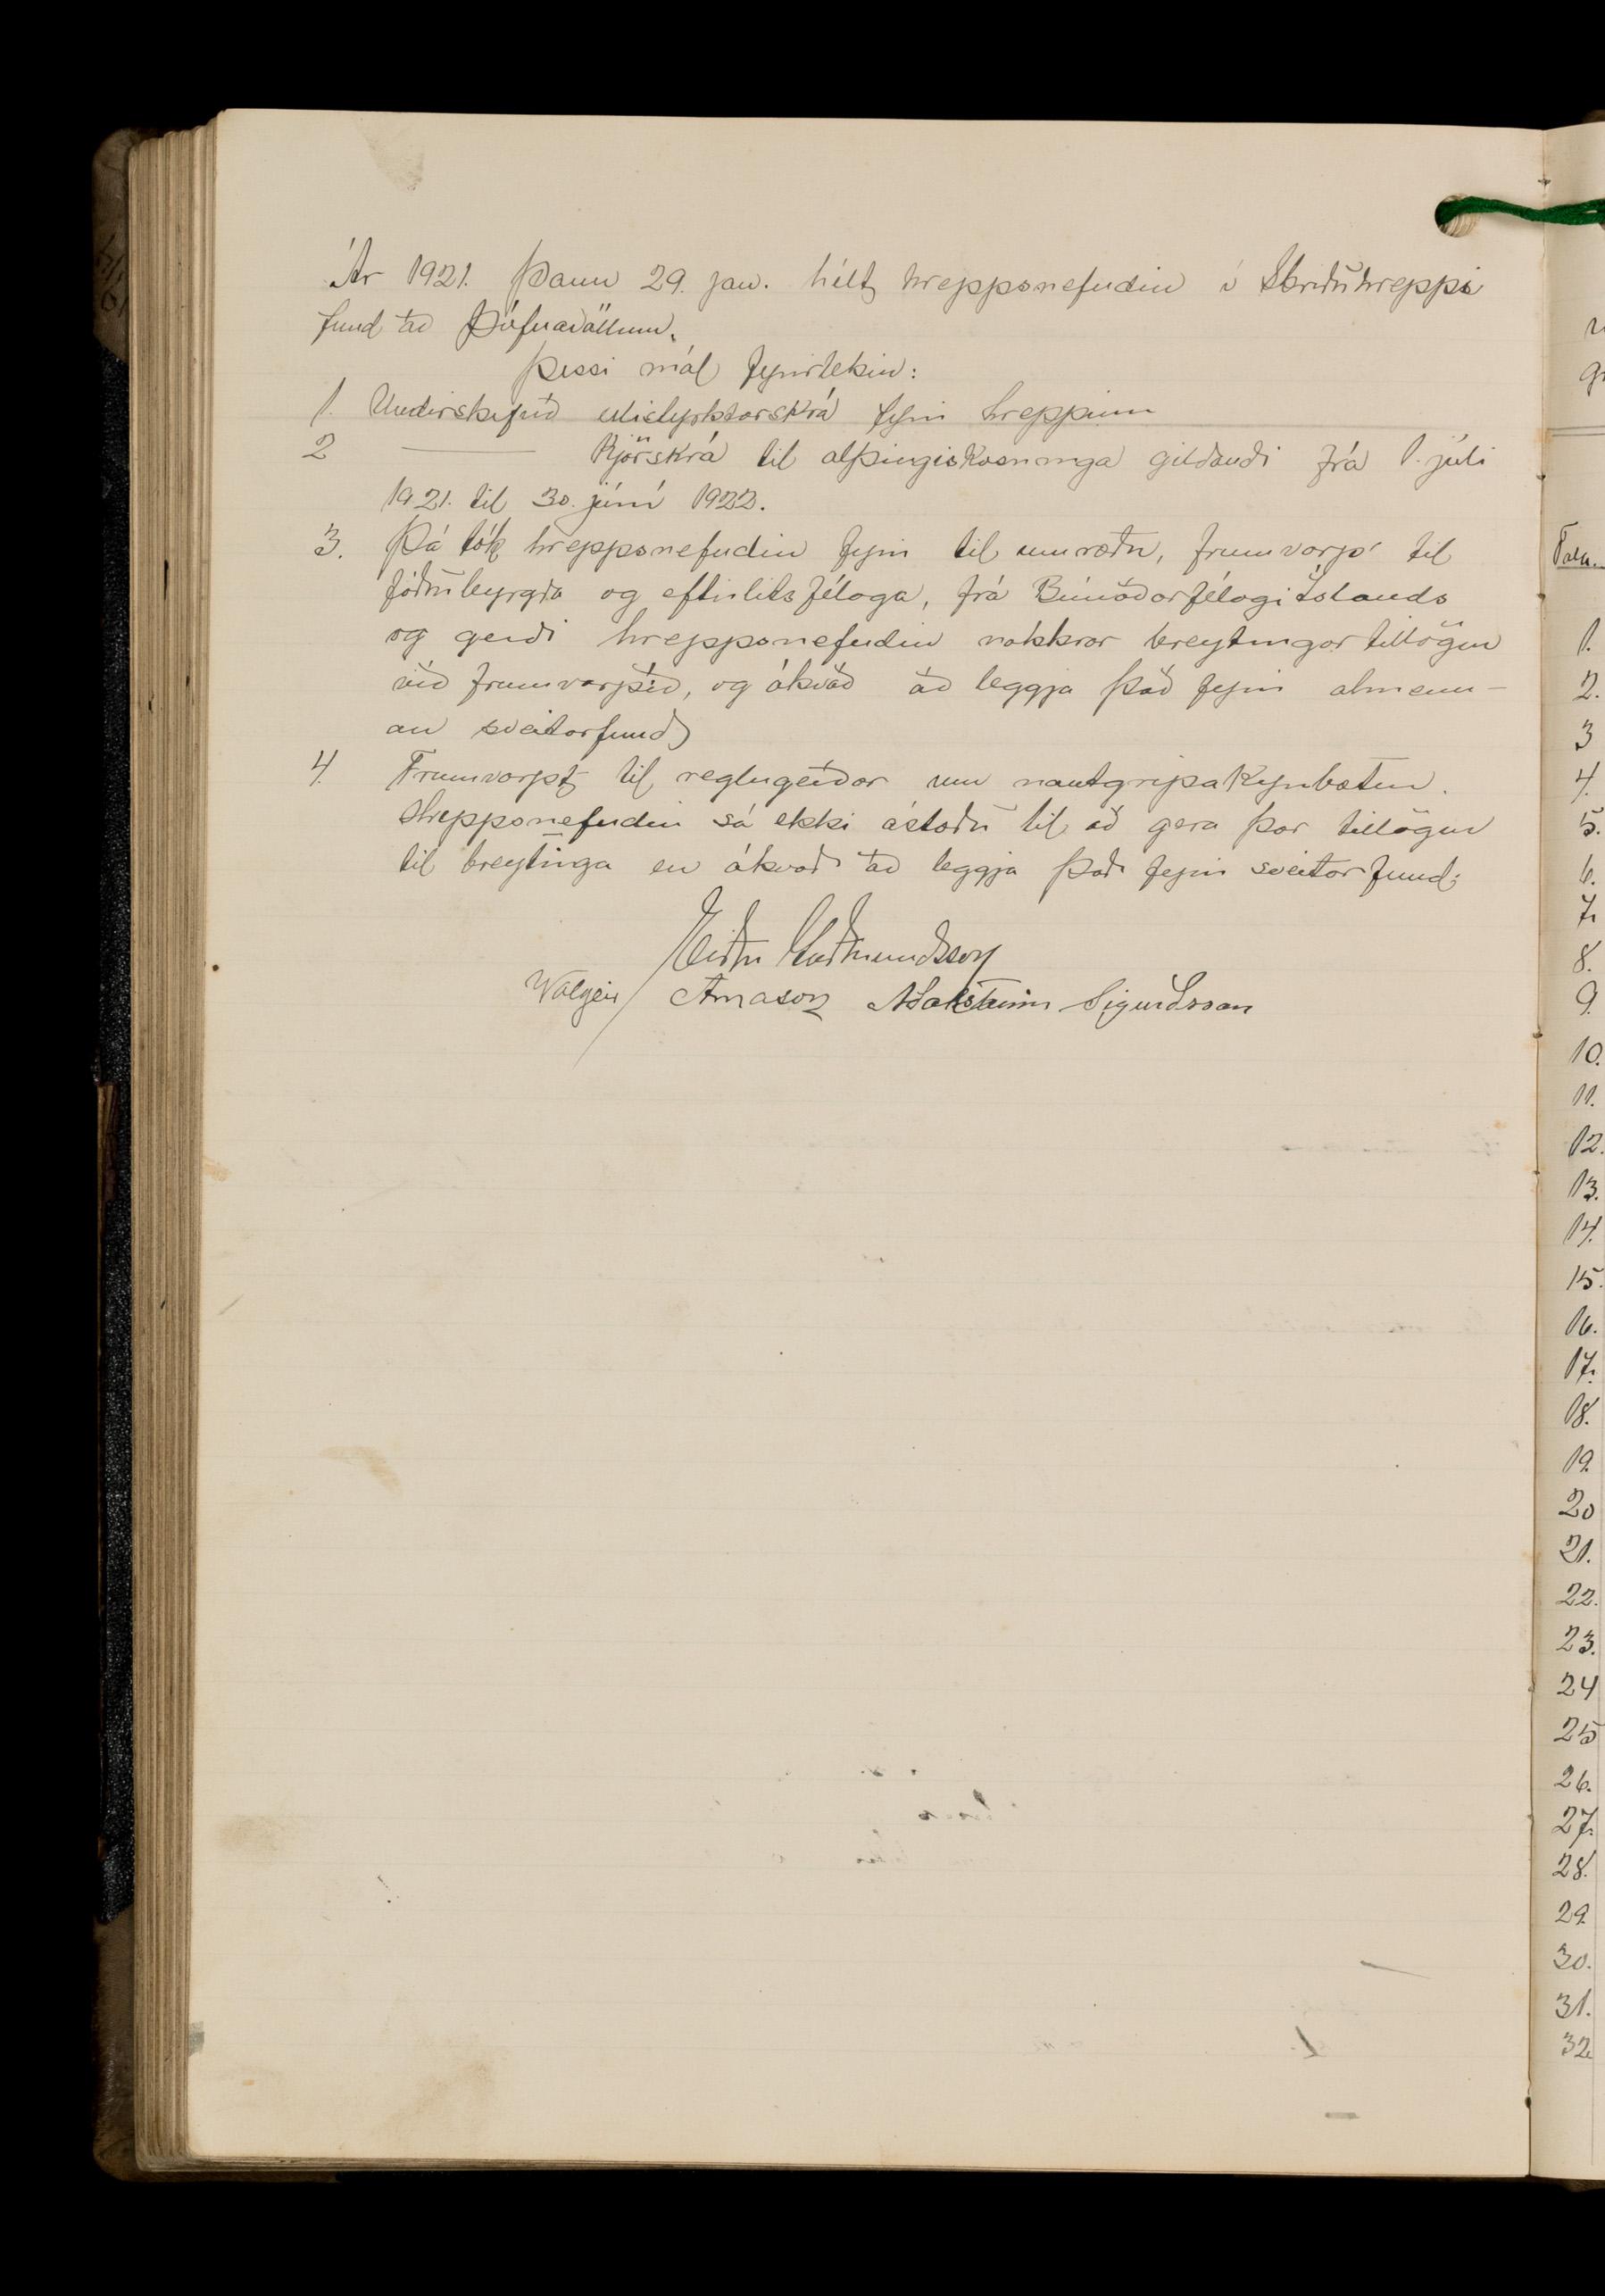 Ár 1921. Þann 29. jan. hélt hreppsnefndin í Skriðuhreppi
fund að Þúfnavöllum.
Þessi mál fyrirtekin:
1. Undirskrifuð ellistyrktarskrá fyrir hreppinn
2 ——— Kjörskrá til alþingiskosninga gildandi frá 1. júli
1921. til 30. júní 1922.
3. Þá tók hreppsnefndin fyrir til umræðu, frumvarp til
fóðurbyrgða og eftirlitsfélaga, frá Búnaðarfélagi Íslands
og gerði hreppsnefndin nokkrar breytingartillögur
við frumvarpið, og ákvað að leggja það fyrir almenn-
an sveitarfund
4. Frumvarp til reglugerðar um nautgripakynbætur.
Hreppsnefndin sá ekki ástæðu til að gera þar tillögur
til breytinga en ákvað að leggja það fyrir sveitarfund.
Eiður Guðmundsson
Valgeir Árnason Aðalsteinn Sigurðsson
1.
2.
3
4.
5.
6.
7.
8.
9.
10.
11.
12.
13.
14.
15.
16.
17.
18.
19.
20
21.
22.
23.
24
25
26.
27.
28.
29.
30.
31.
32